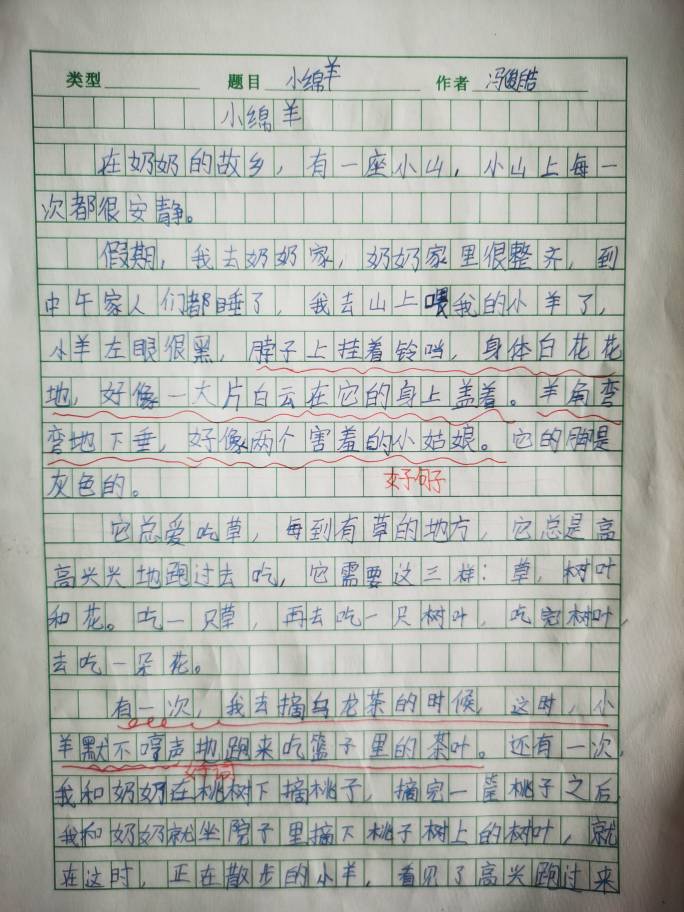 类型 题目 小绵羊 作者 冯俊皓
小绵羊
在奶奶的故乡，有一座小山，小山上每一
次都很安静。
假期，我去奶奶家，奶奶家里很整齐，到
中午家人们都睡了，我去山上喂我的小羊了，
小羊左眼很黑，脖子上挂着铃铛，身体白花花
地，好像一大片白云在它的身上盖着。羊角弯
弯地下垂，好像两个害羞的小姑娘。它的脚是
灰色的。
好句子
它总爱吃草，每到有草的地方，它总是高
高兴兴地跑过去吃，它需要这三样：草，树叶
和花。吃一只草，再去吃一只树叶，吃完树叶，
去吃一朵花。
有一次，我去摘乌龙茶的时候，这时，小
羊默不哼声地跑来吃篮子里的茶叶。还有一次，
好词
我和奶奶在桃树下摘桃子，摘完一筐桃子之后，
我和奶奶就坐院子里摘下桃子树上的树叶，就
在这时，正在散步的小羊，看见了高兴跑过来